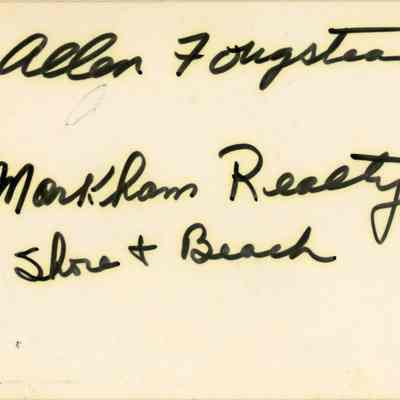 Allen Fougstea
Markham Realty
Shore + Beach